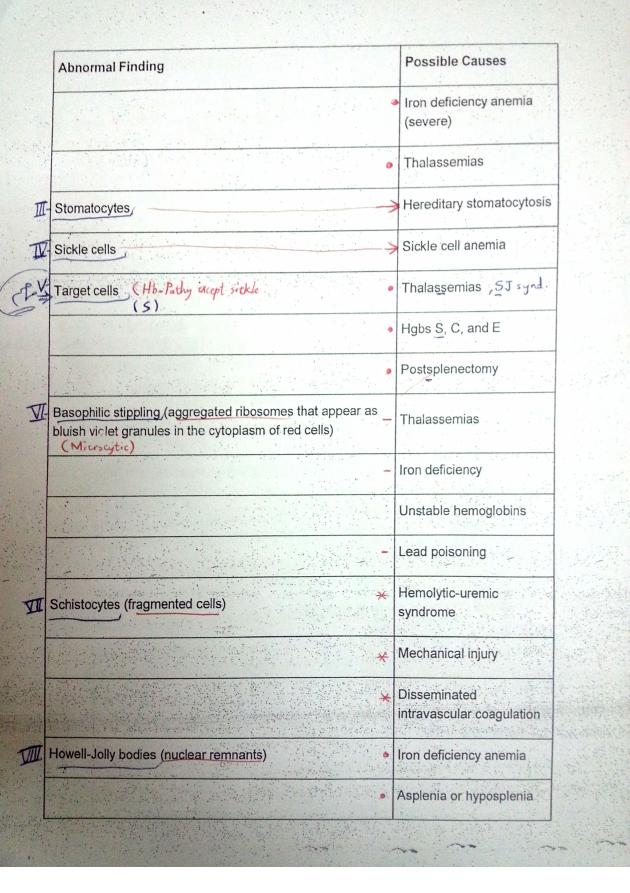 Abnormal Finding
Possible Causes
Iron deficiency anemia
(severe)
Thalassemias
III- Stomatocytes
Hereditary stomatocytosis
IV- Sickle cells
Sickle cell anemia
V- Target cells (Hb-Pathy except sickle
(S)
Thalassemias , SJ synd.
Hgbs S, C, and E
Postsplenectomy
VI- Basophilic stippling (aggregated ribosomes that appear as
bluish violet granules in the cytoplasm of red cells)
(Microcytic)
Thalassemias
Iron deficiency
Unstable hemoglobins
Lead poisoning
VII Schistocytes (fragmented cells)
Hemolytic-uremic
syndrome
Mechanical injury
Disseminated
intravascular coagulation
VIII Howell-Jolly bodies (nuclear remnants)
Iron deficiency anemia
Asplenia or hyposplenia